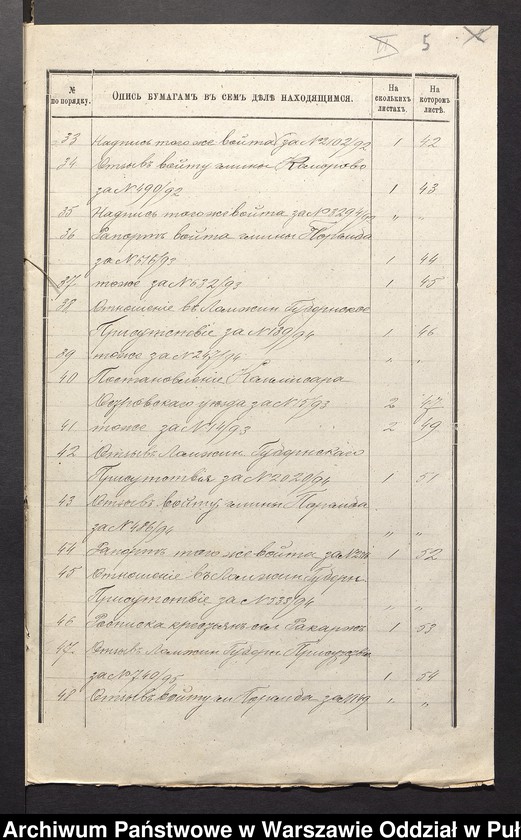 5
№ по порядку.
Опись бумагамъ въ семъ дѣлѣ находящимся.
На сколькихъ листахъ.
На которомъ листѣ.
33 Надпись того же войта за №2102/92 1 42
34 Отзывъ войту гмины Коморово
за №490/92 1 43
35 Надпись того же войта за №3294/92 " "
36 Рапортъ войта гмины Поремба
за №516/93 1 44
37 тоже за №632/93 1 45
38 Отношеніе въ Ломжин. Губернское
Присутствіе за №189/94 1 46
39 тоже за №247/94 " "
40 Постановленіе Коммисара
Островскаго уѣзда за №5/93 2 47
41 тоже за №14/93 2 49
42 Отзывъ Ломжин. Губернскаго
Присутствія за №2020/94 1 51
43 Отзывъ войту гмины Поремба
за №486/94 " "
44 Рапортъ того же войта за № 1 52
45 Отношеніе въ Ломжин. Губерн.
Присутствіе за №533/94 " "
46 Росписка крестьянъ сел. 1 53
47 Отзывъ Ломжин. Губерн. Присутствія
за №740/95 1 54
48 Отзывъ войту гм. Поремба за № " "
Archiwum Państwowe w Warszawie Oddział w Puł